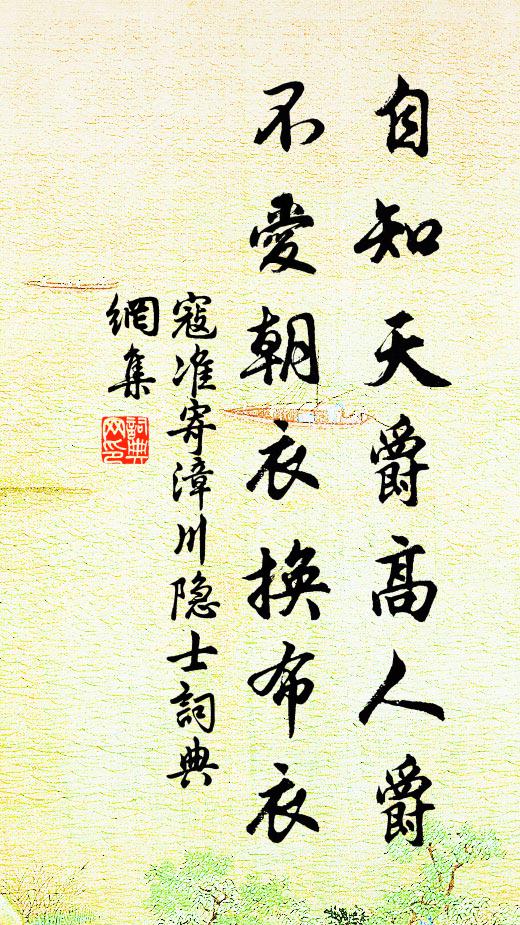 自知天爵高人爵
不愛朝衣換布衣
寇准寄漳川隐士詞典
網集
詞典
网印